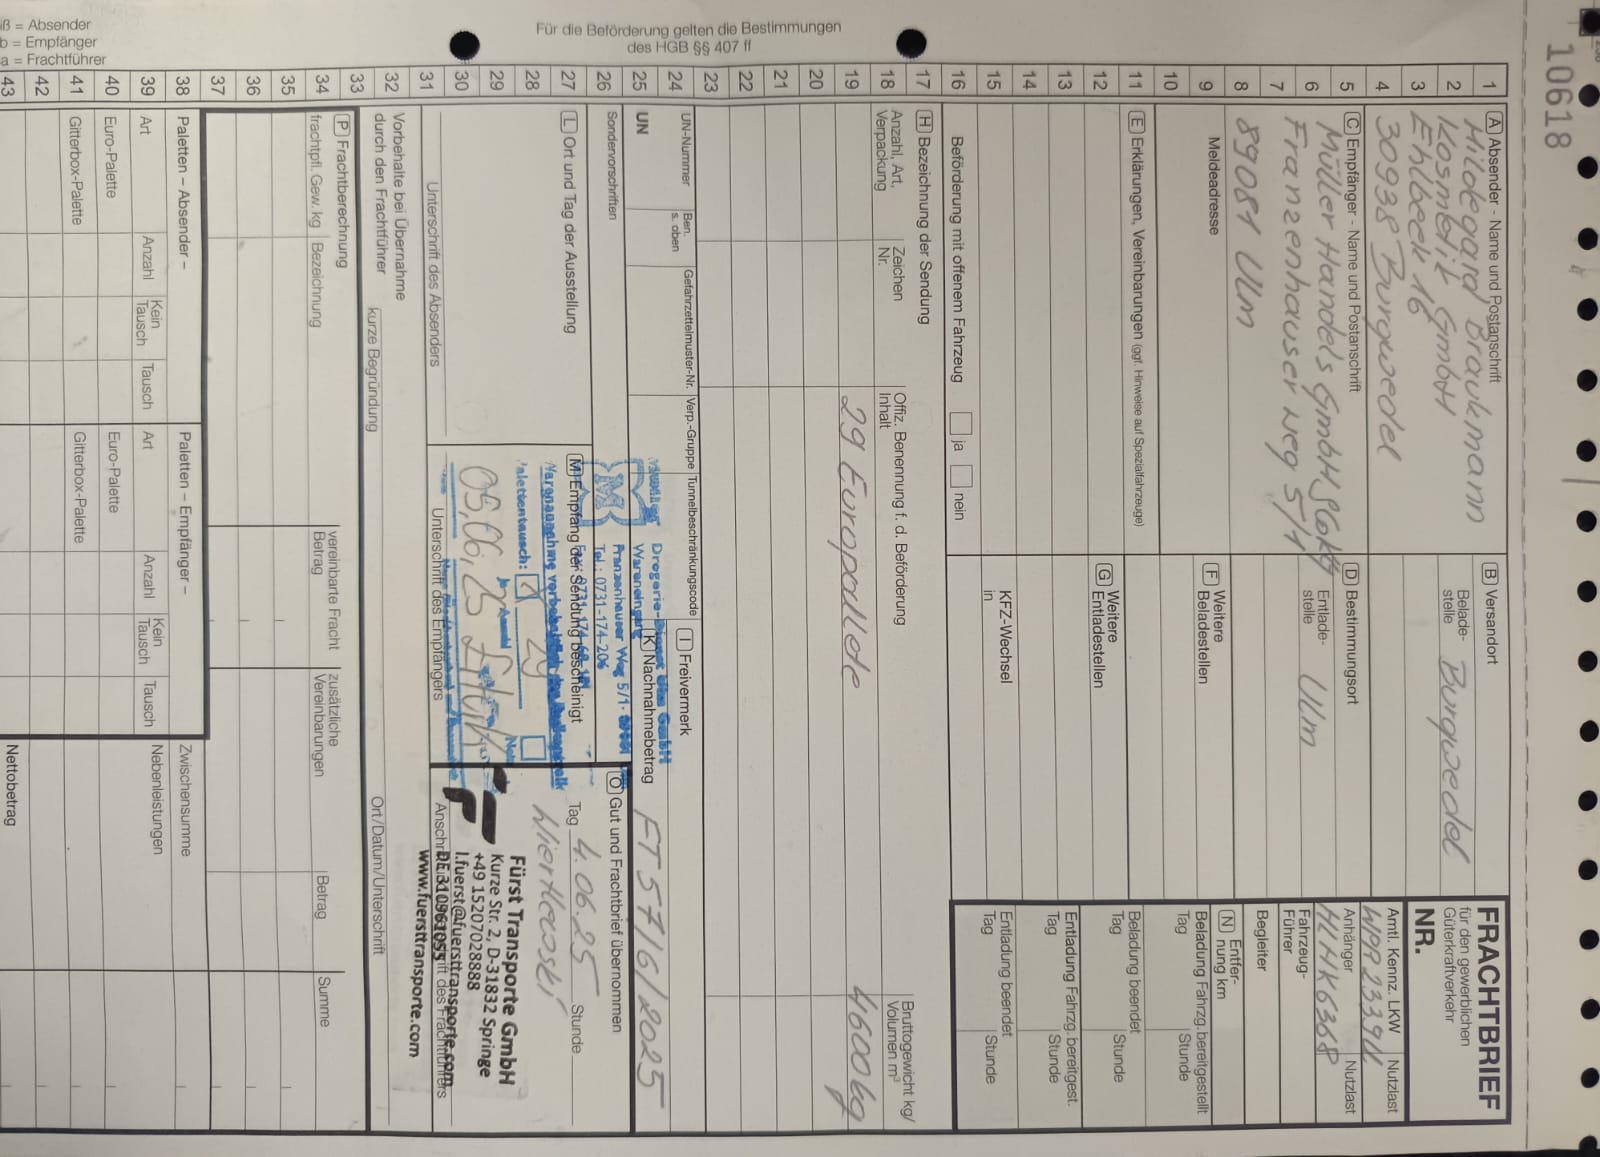 10618
Für die Beförderung gelten die Bestimmungen
des HGB §§ 407 ff
= Absender
b = Empfänger
a = Frachtführer
FRACHTBRIEF
für den gewerblichen
Güterkraftverkehr
NR.
A Absender - Name und Postanschrift
Hildegard Braukmann
Kosmetik GmbH
Ehlbeek 16
30938 Burgwedel
B Versandort
Belade-
stelle
Burgwedel
C Empfänger - Name und Postanschrift
Müller Handels GmbH & Co KG
Franzenhauser Weg 5/1
89081 Ulm
D Bestimmungsort
Entlade-
stelle
Ulm
Amtl. Kennz. LKW
Nutzlast
Anhänger
Nutzlast
HLHK6368
Fahrzeug-
Führer
Begleiter
Meldeadresse
F Weitere
Beladestellen
N Entfer-
nung km
Beladung Fahrzg. bereitgestellt
Tag
Stunde
E Erklärungen, Vereinbarungen (ggf. Hinweise auf Spezialfahrzeuge)
G Weitere
Entladestellen
Beladung beendet
Tag
Stunde
Entladung Fahrzg. bereitgest.
Tag
Stunde
KFZ-Wechsel
in
Entladung beendet
Tag
Stunde
Beförderung mit offenem Fahrzeug
ja
nein
H Bezeichnung der Sendung
Anzahl, Art,
Verpackung
Zeichen
Nr.
Offiz. Benennung f. d. Beförderung
Inhalt
Bruttogewicht kg/
Volumen m³
29 Europalette
4600 kg
UN-Nummer
Ben.
s. oben
Gefahrzettelmuster-Nr.
Verp.-Gruppe
Tunnelbeschränkungscode
I Freivermerk
UN
K Nachnahmebetrag
FT 57/6/2025
Sondervorschriften
Wareneingang
Franzenhauser Weg 5/1
Tel.: 0731-174-206
L Ort und Tag der Ausstellung
M Empfang der Sendung bescheinigt
Palettentausch:
29
05.06.25
O Gut und Frachtbrief übernommen
Tag
4.06.25
Stunde
Fürst Transporte GmbH
Kurze Str. 2, D-31832 Springe
+49 15207028888
l.fuerst@fuersttransporte.com
DE310961055
www.fuersttransporte.com
Unterschrift des Absenders
Unterschrift des Empfängers
Anschrift des Frachtführers
Vorbehalte bei Übernahme
durch den Frachtführer
kurze Begründung
Ort/Datum/Unterschrift
P Frachtberechnung
frachtpfl. Gew. kg
Bezeichnung
vereinbarte Fracht
Betrag
zusätzliche
Vereinbarungen
Betrag
Summe
Paletten – Absender –
Paletten – Empfänger –
Zwischensumme
Art
Anzahl
Kein
Tausch
Tausch
Art
Anzahl
Kein
Tausch
Tausch
Nebenleistungen
Euro-Palette
Euro-Palette
Gitterbox-Palette
Gitterbox-Palette
Nettobetrag
1
2
3
4
5
6
7
8
9
10
11
12
13
14
15
16
17
18
19
20
21
22
23
24
25
26
27
28
29
30
31
32
33
34
35
36
37
38
39
40
41
42
43